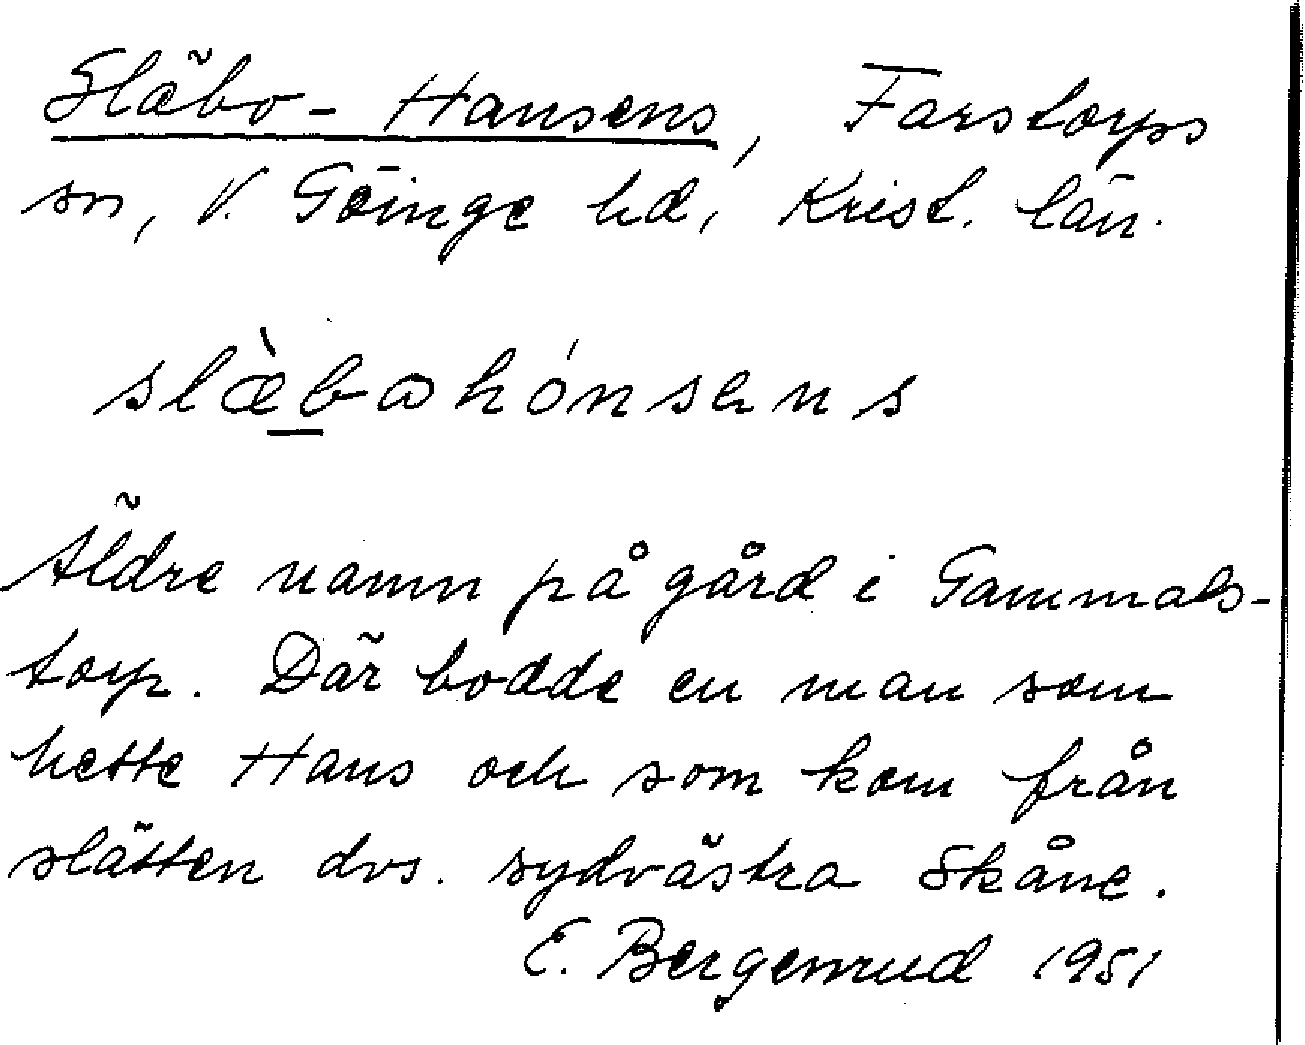 Släbo-Hansens, Farstorps
sn, V. Göinge hd, Krist. län.
slæ̀bahónsens
Äldre namn på gård i Gammals-
torp. Där bodde en man som
hette Hans och som kom från
slätten dvs. sydvästra Skåne.
E. Bergenrud 1951